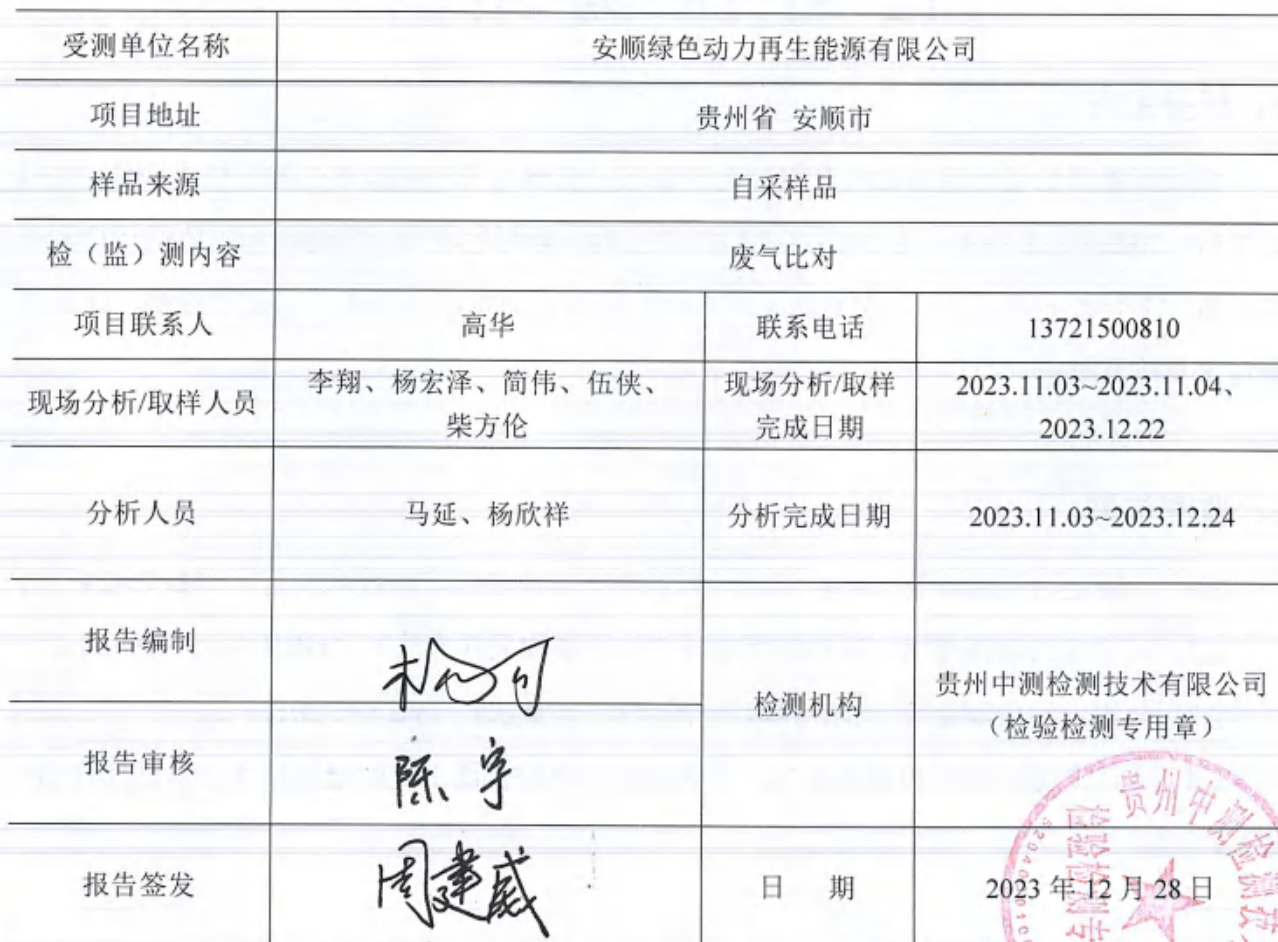 受测单位名称 安顺绿色动力再生能源有限公司
项目地址 贵州省 安顺市
样品来源 自采样品
检（监）测内容 废气比对
项目联系人 高华 联系电话 13721500810
现场分析/取样人员 李翔、杨宏泽、简伟、伍侠、
柴方伦 现场分析/取样
完成日期 2023.11.03~2023.11.04、
2023.12.22
分析人员 马延、杨欣祥 分析完成日期 2023.11.03~2023.12.24
报告编制
检测机构 贵州中测检测技术有限公司
（检验检测专用章）
报告审核 陈宇
报告签发 周建威 日 期 2023 年 12 月 28 日
贵州中测检测技
检验检测专